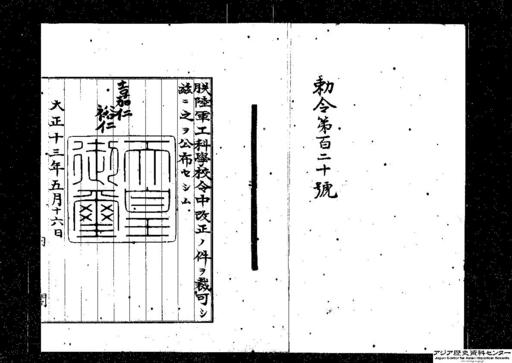 勅令第百二十號
朕陸軍工科學校令中改正ノ件ヲ裁可シ
茲ニ之ヲ公布セシム
嘉仁
裕仁
天皇
御璽
大正十三年五月十六日
アジア歴史資料センター
Japan Center for Asian Historical Records